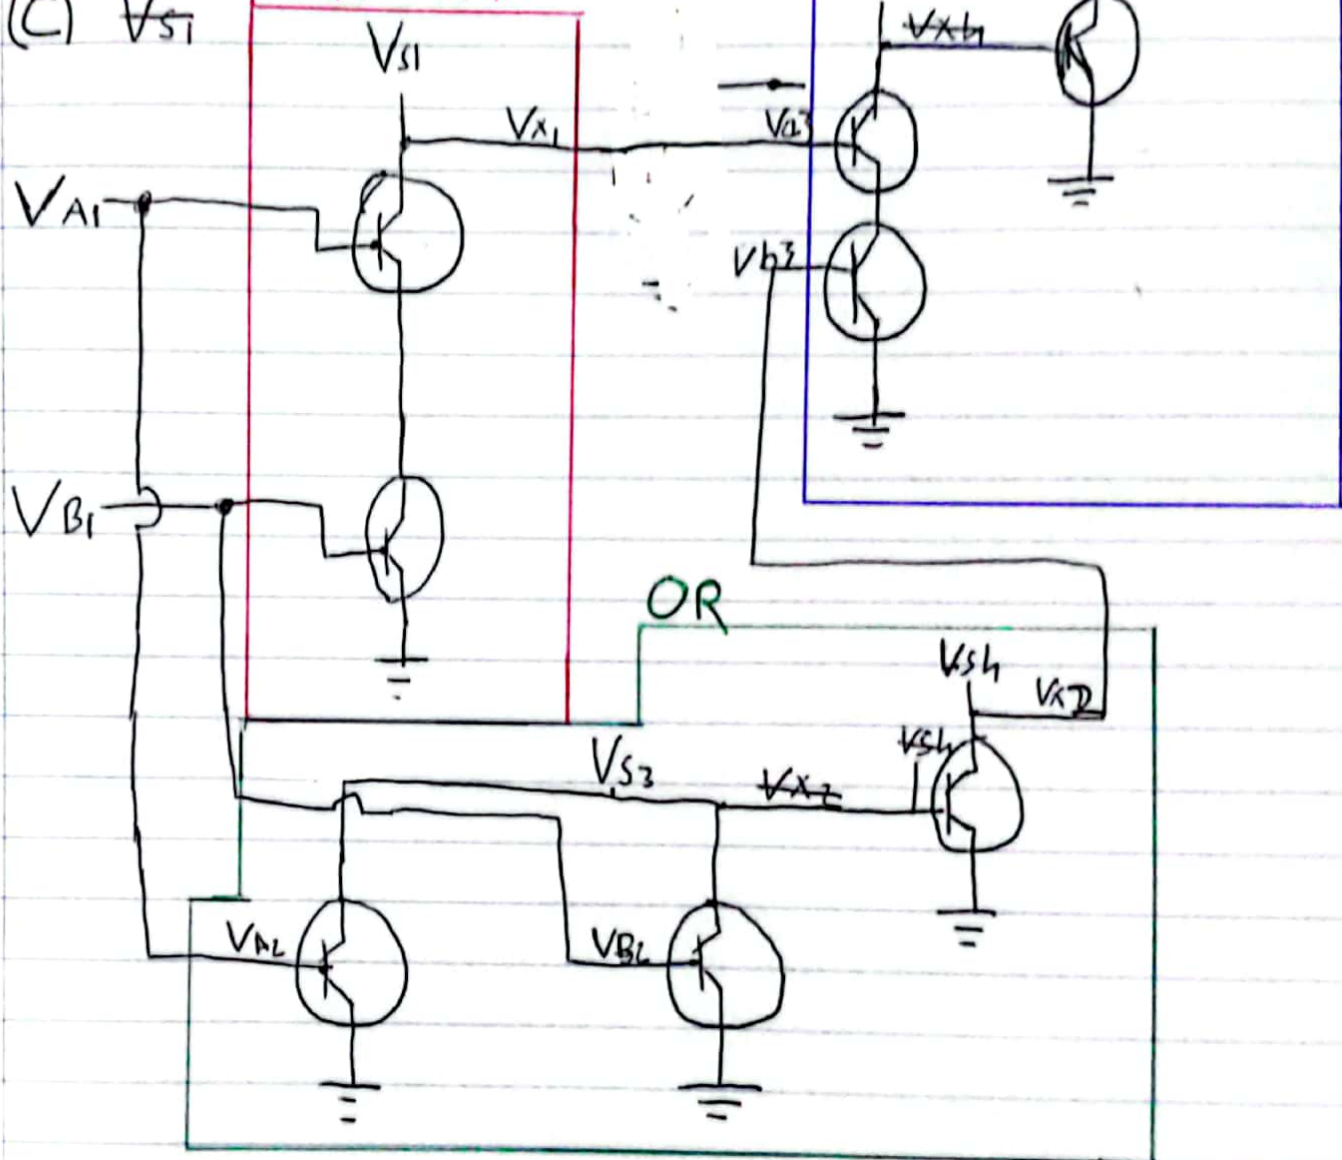 (C) VS1
VS1
Vxb1
VX1
Va3
VA1
Vb3
VB1
OR
VSh
VX2
VSh
VS3
VX2
VA2
VB2